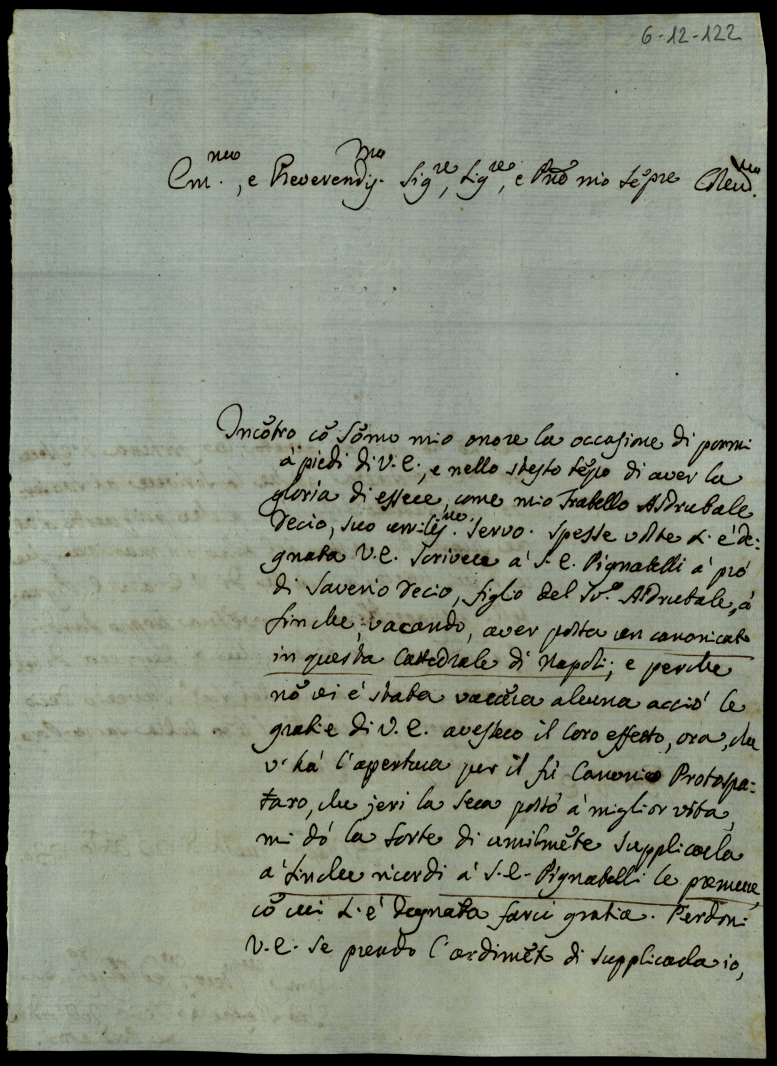 6-12-122
Em.mo, e Reverendis.mo Sig.re, Sig.re, e Pñe mio sẽpre Colend.mo
Incõtro cõ sõmo mio onore la occasione di pormi
a' piedi di V. E., e nello stesso tẽpo di aver la
gloria di essere, come mio Fratello Asdrubale
Decio, suo umilis.mo servo. Spesse volte s. e' de:
gnata V. E. scrivere a' S. E. Pignatelli a' pro'
di Saverio Decio, figlio del Sud.o Asdrubale, a'
finche, vacando, aver potta un canonicato
in questa Cattedrale di Napoli; e perche
nõ vi e' stata vacãza alcuna accio' le
gratie di V. E. avessero il loro effetto, ora, che
v' ha' l'apertura per il fu' Canonico Protospa:
taro, che jeri la sera passo' a' miglior vita,
mi do' la sorte di umilmẽte supplicarla
a' finche ricordi a' S. E. Pignatelli le premure,
cõ cui s. e' degnata farci gratia. Perdoni
V. E. se prendo l'ardimẽto di supplicarla io,